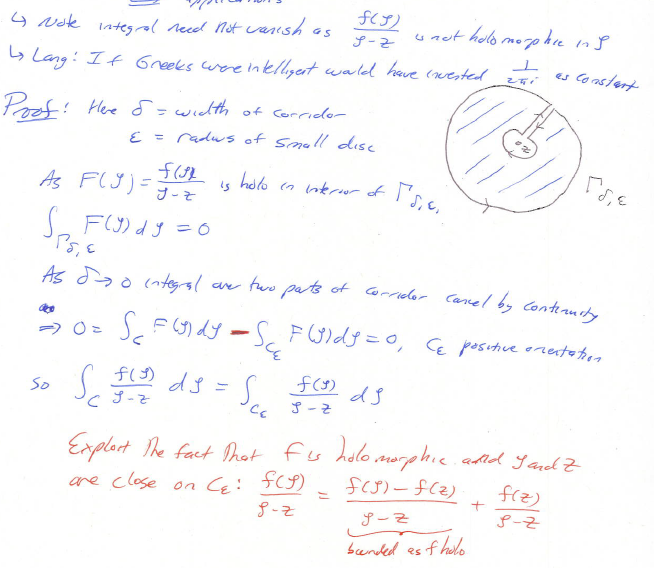 ↳ Note integral need not vanish as f(ζ)/(ζ-z) is not holomorphic in ζ
↳ Lang: If Greeks were intelligent would have invented 1/(2πi) as constant
Proof: Here δ = width of corridor
ε = radius of small disc
z
Γδ,ε
As F(ζ) = f(ζ)/(ζ-z) is holo in interior of Γδ,ε,
∫Γδ,ε F(ζ)dζ = 0
As δ→0 integral over two parts of corridor cancel by continuity
⇒ 0 = ∫C F(ζ)dζ - ∫Cε F(ζ)dζ = 0, Cε positive orientation
So ∫C f(ζ)/(ζ-z) dζ = ∫Cε f(ζ)/(ζ-z) dζ
Exploit the fact that f is holomorphic and ζ and z
are close on Cε: f(ζ)/(ζ-z) = (f(ζ)-f(z))/(ζ-z) + f(z)/(ζ-z)
bounded as f holo